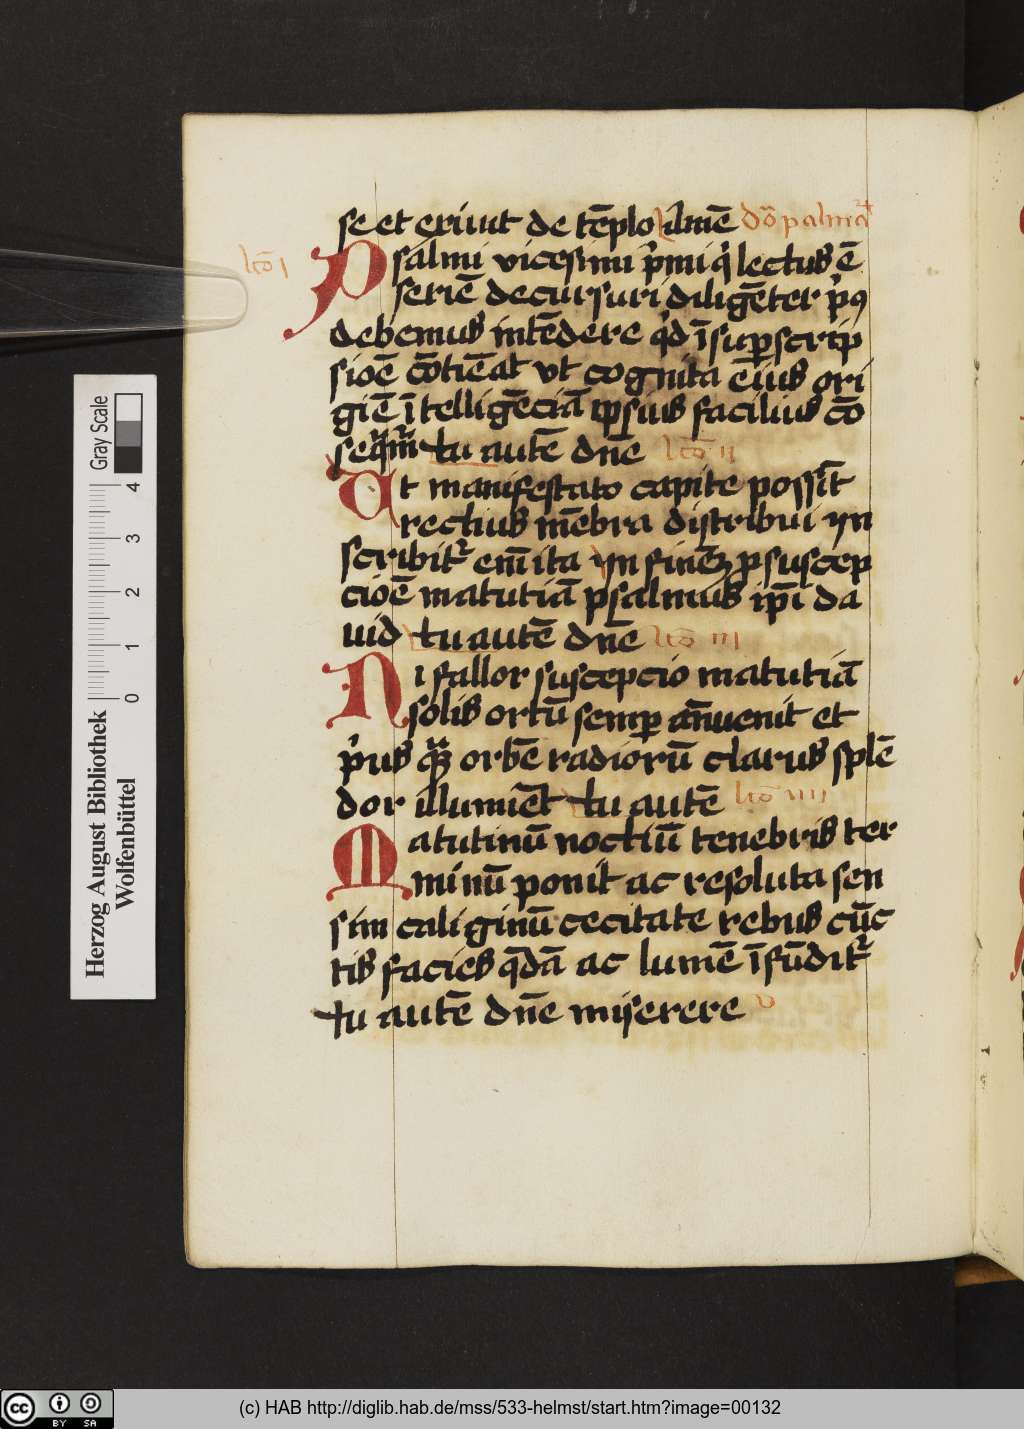 se et exiuit de tēplo dn̄ica palmaꝝ
lcō i
Psalmi vicesimi p̓mi q̓ lectus ē
seriē decursuri diligēter p̓us
debemus intēdere qd̓ ī suꝑscrip
sioē cōtiēat vt cognita ei̅us ori
giē ītelligēciā ipsius facilius cō
seqm̄r tu autē dn̄e lcō ii
Ut manifestato capite possīt
rectius mēbra distribui yn
scribitr̄ em̄ ita yn finē p suscep
cioē matutiā psalmus ip̄i da
uid tu autē dn̄e lcō iii
Ni fallor suscepcio matutiā
solis ortū semꝑ an̄uenit et
p̓us qͣꝫ orbē radiorū clarus splē
dor illumiēt tu autē lcō iiii
Matutinū noctiū tenebris ter
minū ponit ac resoluta sen
sim caliginū cecitate rebus cūc
tis facies qͣdā ac lumē īfūditr̄
tu autē dn̄e miserere
Gray Scale
0 1 2 3 4
Herzog August Bibliothek
Wolfenbüttel
cc BY SA
(c) HAB http://diglib.hab.de/mss/533-helmst/start.htm?image=00132